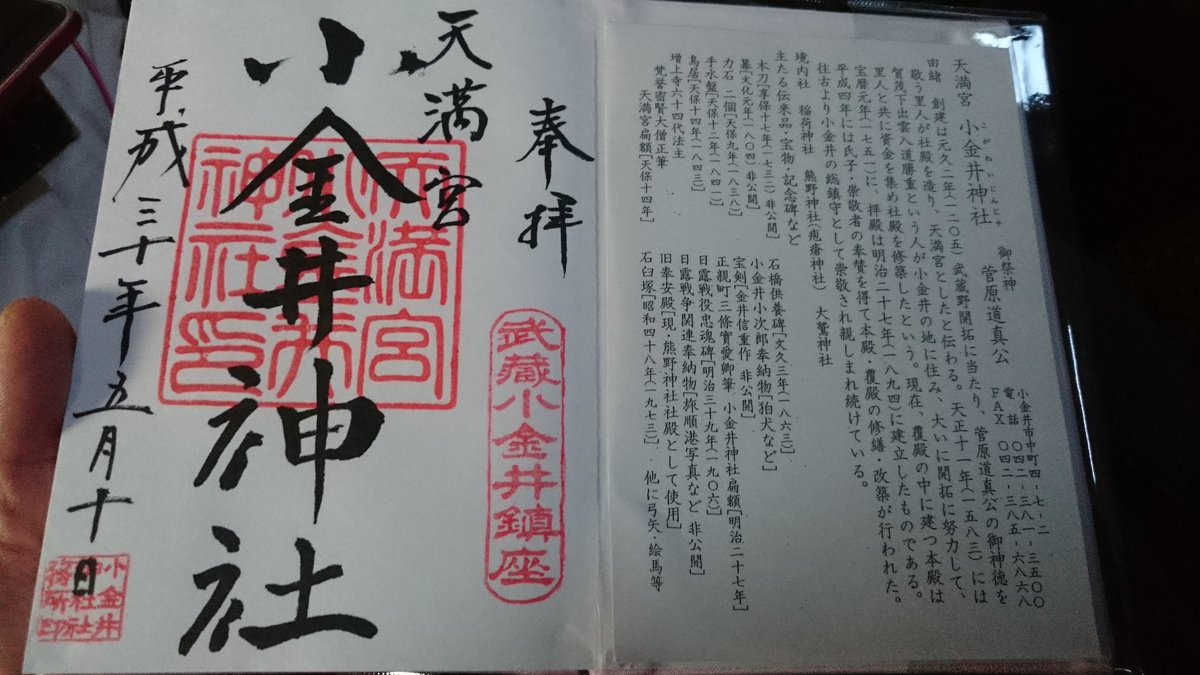 天満宮 小金井神社
こがねいじんじゃ
御祭神 菅原道真公
小金井市中町四-七-二
電話 〇四二-三八一-三五〇〇
FAX 〇四二-三八五-六八六八
由緒 創建は元久二年(一二〇五)武蔵野開拓に当たり、菅原道真公の御神徳を
敬う里人が社殿を造り、天満宮としたと伝わる。天正十一年(一五八三)には
賀茂下出雲入道勝重という人が小金井の地に住み、大いに開拓に努力して、
里人と共に資金を集め社殿を修築したという。現在、覆殿の中に建つ本殿は
宝暦元年(一七五一)に、拝殿は明治二十七年(一八九四)に建立したものである。
平成四年には氏子・崇敬者の奉賛を得て本殿・覆殿の修繕・改築が行われた。
往古より小金井の総鎮守として崇敬され親しまれ続けている。
境内社 稲荷神社 熊野神社(疱瘡神社) 大鷲神社
主たる伝来品・宝物・記念碑など
木刀[享保十七年(一七三二)非公開]
墓[文化元年(一八〇四)非公開]
力石 二個[天保九年(一八三八)]
手水盤[天保十二年(一八四一)]
鳥居[天保十四年(一八四三)]
増上寺六十四代法主
梵誉密賢大僧正筆
天満宮扁額[天保十四年]
石橋供養碑[文久三年(一八六三)]
小金井小次郎奉納物[狛犬など]
宝剣[金井信重作 非公開]
正親町三條實愛卿筆 小金井神社扁額[明治二十七年]
日露戦役忠魂碑[明治三十九年(一九〇六)]
日露戦争関連奉納物[旅順港写真など 非公開]
旧奉安殿[現・熊野神社社殿として使用]
石臼塚[昭和四十八年(一九七三)] 他に弓矢・絵馬等
奉拝
武蔵小金井鎮座
天満宮
小金井神社
天満宮
小金井
神社印
平成三十年五月十日
小金井
神社社
務所印